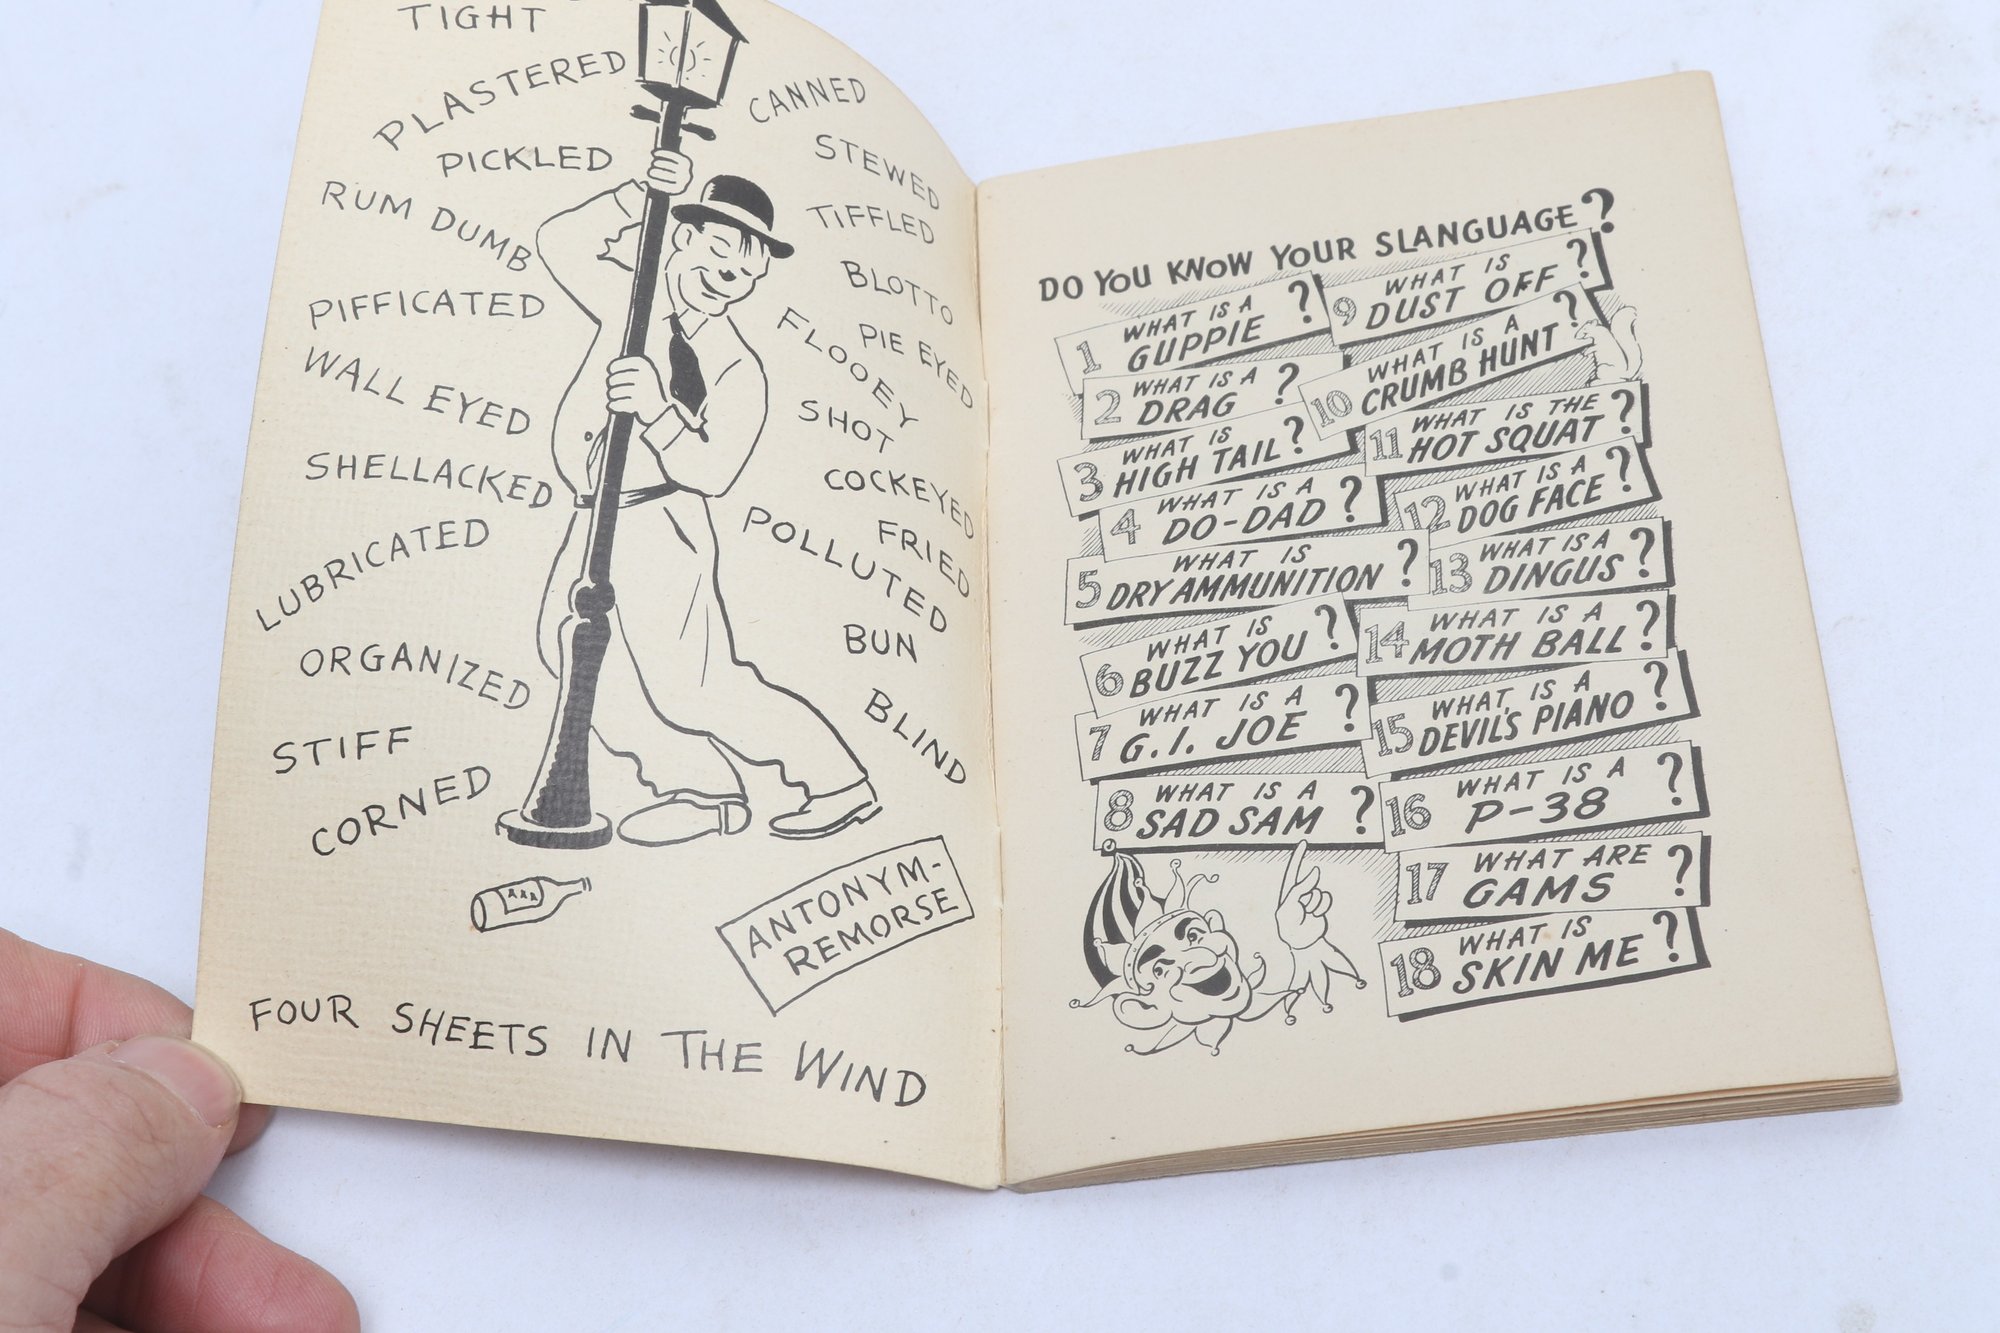 TIGHT
PLASTERED
PICKLED
RUM DUMB
PIFFICATED
WALL EYED
SHELLACKED
LUBRICATED
ORGANIZED
STIFF
CORNED
CANNED
STEWED
TIFFLED
BLOTTO
PIE EYED
FLOOEY
SHOT
COCKEYED
FRIED
POLLUTED
BUN
BLIND
XXX
ANTONYM-
REMORSE
FOUR SHEETS IN THE WIND
DO YOU KNOW YOUR SLANGUAGE?
1 WHAT IS A
GUPPIE?
2 WHAT IS A
DRAG?
3 WHAT IS
HIGH TAIL?
4 WHAT IS A
DO-DAD?
5 WHAT IS
DRY AMMUNITION?
6 WHAT IS
BUZZ YOU?
7 WHAT IS A
G.I. JOE?
8 WHAT IS A
SAD SAM?
9 WHAT IS
DUST OFF?
10 WHAT IS A
CRUMB HUNT?
11 WHAT IS THE
HOT SQUAT?
12 WHAT IS A
DOG FACE?
13 WHAT IS A
DINGUS?
14 WHAT IS A
MOTH BALL?
15 WHAT IS A
DEVIL'S PIANO?
16 WHAT IS A
P-38?
17 WHAT ARE
GAMS?
18 WHAT IS
SKIN ME?